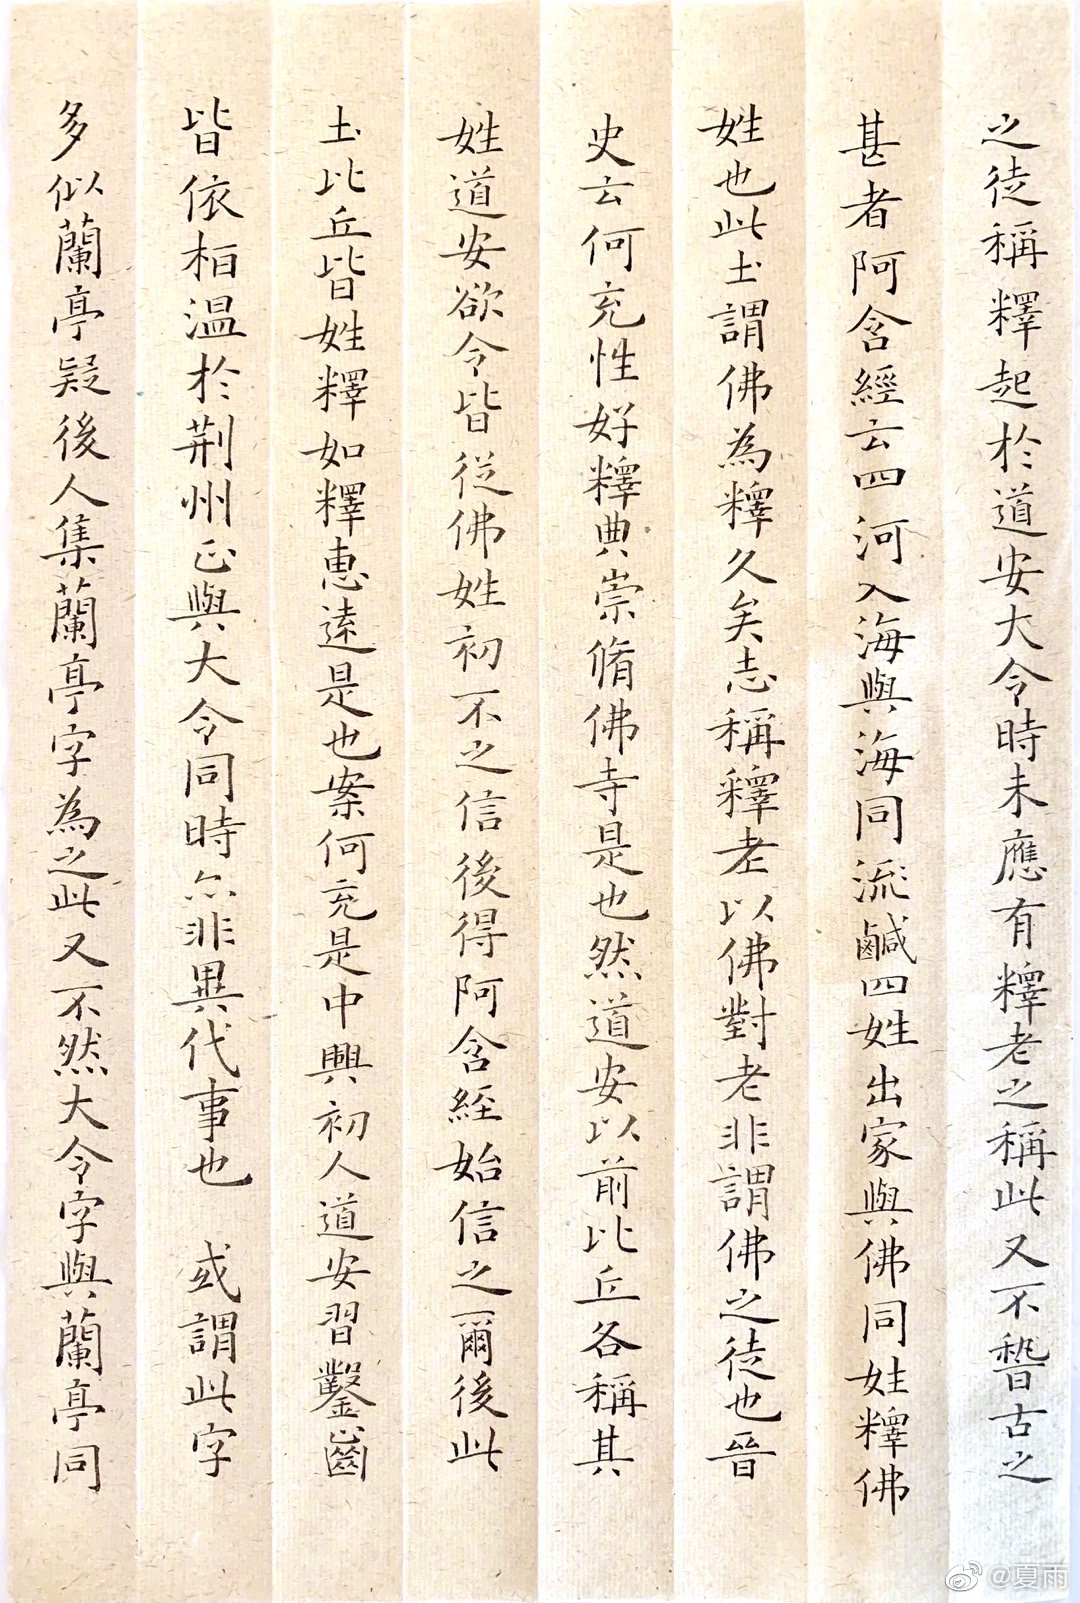 之徒稱釋起於道安大令時未應有釋老之稱此又不稽古之
甚者阿含經云四河入海與海同流鹹四姓出家與佛同姓釋佛
姓也此土謂佛為釋久矣志稱釋老以佛對老非謂佛之徒也晉
史云何充性好釋典崇脩佛寺是也然道安以前比丘各稱其
姓道安欲令皆從佛姓初不之信後得阿含經始信之爾後此
土比丘皆姓釋如釋惠遠是也案何充是中興初人道安習鑿齒
皆依桓温於荆州正與大令同時亦非異代事也 或謂此字
多似蘭亭疑後人集蘭亭字為之此又不然大令字與蘭亭同
@夏雨